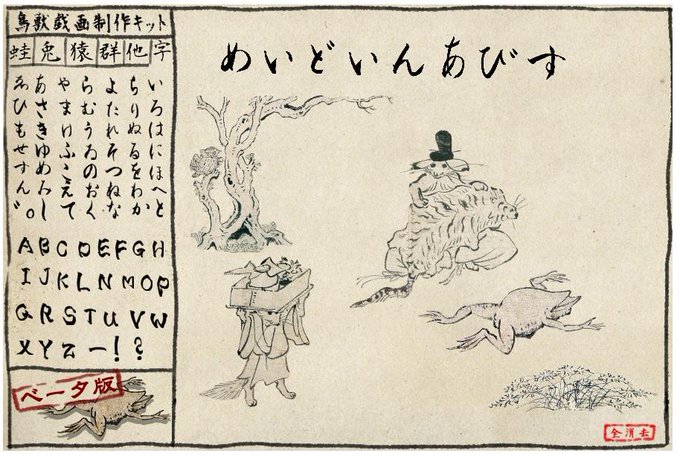 鳥獣戯画制作キット
蛙 兎 猿 群 他 字
いろはにほへと
ちりぬるをわか
よたれそつねな
らむうゐのおく
やまけふこえて
あさきゆめみし
ゑひもせすん゛。
A B C D E F G H
I J K L N M O P
Q R S T U V W
X Y Z ー ! ?
ベータ版
めいどいんあびす
全消去